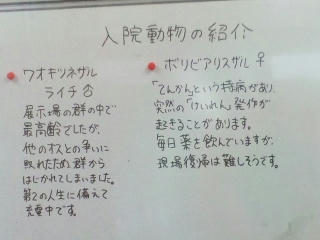 入院動物の紹介
ワオキツネザル
ライチ♂
展示場の群の中で
最高齢でしたが、
他のオスとの争いに
敗れたため群から
はじかれてしまいました。
第2の人生に備えて
充電中です。
ボリビアリスザル♀
「てんかん」という持病があり、
突然の「けいれん」発作が
起きることがあります。
毎日薬を飲んでいますが、
現場復帰は難しそうです。